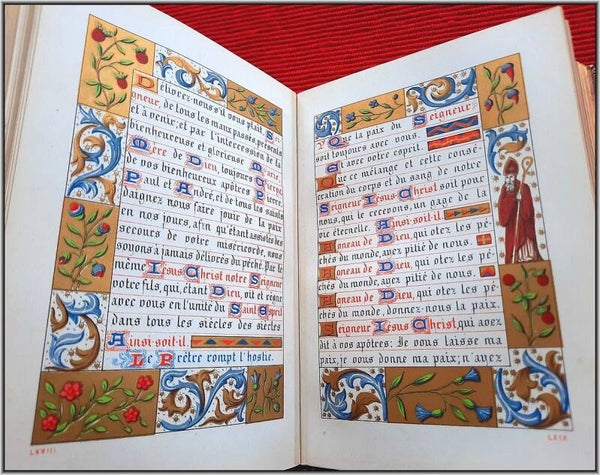 Délivrez-nous s'il vous plait, Sei
gneur, de tous les maux passés, présents
et à venir; et par l'intercession de la
bienheureuse et glorieuse Marie,
Mère de Dieu, toujours Vierge,
de vos bienheureux apôtres Pierre,
Paul et André, et de tous les saints,
daignez nous faire jouir de la paix
en nos jours, afin qu'étant assistés des
secours de votre miséricorde, nous
soyons à jamais délivrés du péché. Par le
même Jésus Christ notre Seigneur
votre fils, qui, étant Dieu, vit et règne
avec vous en l'unité du Saint Esprit
dans tous les siècles des siècles
Ainsi-soit-il.
Le Prêtre rompt l'hostie.
LXVIII
Que la paix du Seigneur
soit toujours avec vous.
Et avec votre esprit.
Que ce mélange et cette consé-
cration du corps et du sang de notre
Seigneur Jésus Christ soit pour
nous, qui le recevons, un gage de la
vie éternelle. Ainsi-soit-il.
Agneau de Dieu, qui ôtez les pé-
chés du monde, ayez pitié de nous.
Agneau de Dieu, qui ôtez les pé-
chés du monde, ayez pitié de nous.
Agneau de Dieu, qui ôtez les pé-
chés du monde, donnez-nous la paix.
Seigneur Jésus Christ, qui avez
dit à vos apôtres: Je vous laisse ma
paix, je vous donne ma paix; n'ayez
LXIX